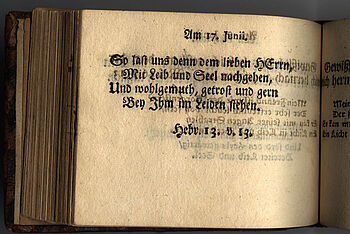 Am 17. Junii.
So last uns denn dem lieben HErrn,
Mit Leib und Seel nachgehen,
Und wohlgemuth, getrost und gern
Bey Ihm im Leiden stehen.
Hebr. 13. v. 13.